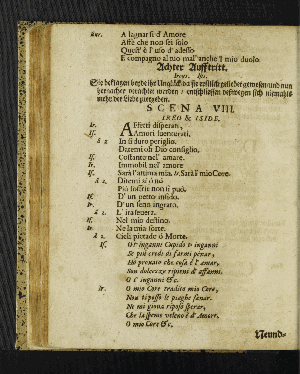 A lagnar si d' Amore
Affè che non sei solo
Quest' è l' uso d' adesso
E compagno al tuo mal' anche 'l mio duolo.
Achter Aufftritt.
Ireus. Isis.
Sie beklagen beyde ihr Unglück da sie erstlich geliebet gewesen und nun
hernacher verachtet werden / entschliessen deswegen sich niemahls
mehr der Liebe zu ergeben.
SCENA VIII.
IREO & ISIDE.
Ir. Affetti disperati,
If. Amori sventurati.
à 2 In sì duro periglio.
Datemi oh Dio consiglio.
If. Costante nel' amare.
Ir. Immobil nel' amore
If. Sarà l' anima mia. Ir. Sarà l' mio Core.
à 2. Ditemi sì ò nò
Più soffrir non si può.
If. D' un petto infido.
Ir. D' un seno ingrato.
à 2. L' ira severa.
If. Nel mio destino.
Ir. Ne la mia sorte.
à 2. Cieli pietade ò Morte.
If. O s' inganni Cupido s' inganni
Se più credi di farmi penar,
Hò provato che cosa è l' amar,
Son dolcezze ripieni d' affanni.
O s' inganni &c.
Ir. O mio Core tradito mio Core,
Non ti posso le piaghe sanar.
Nè mi giova riposo sperar,
Che la speme veleno è d' Amore.
O mio Core &c.
Neund-